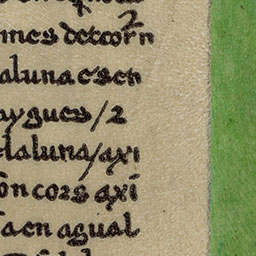 mes de tcorn
aluna es en
aygues / 2
elaluna / axi
on cors axi
a en agual